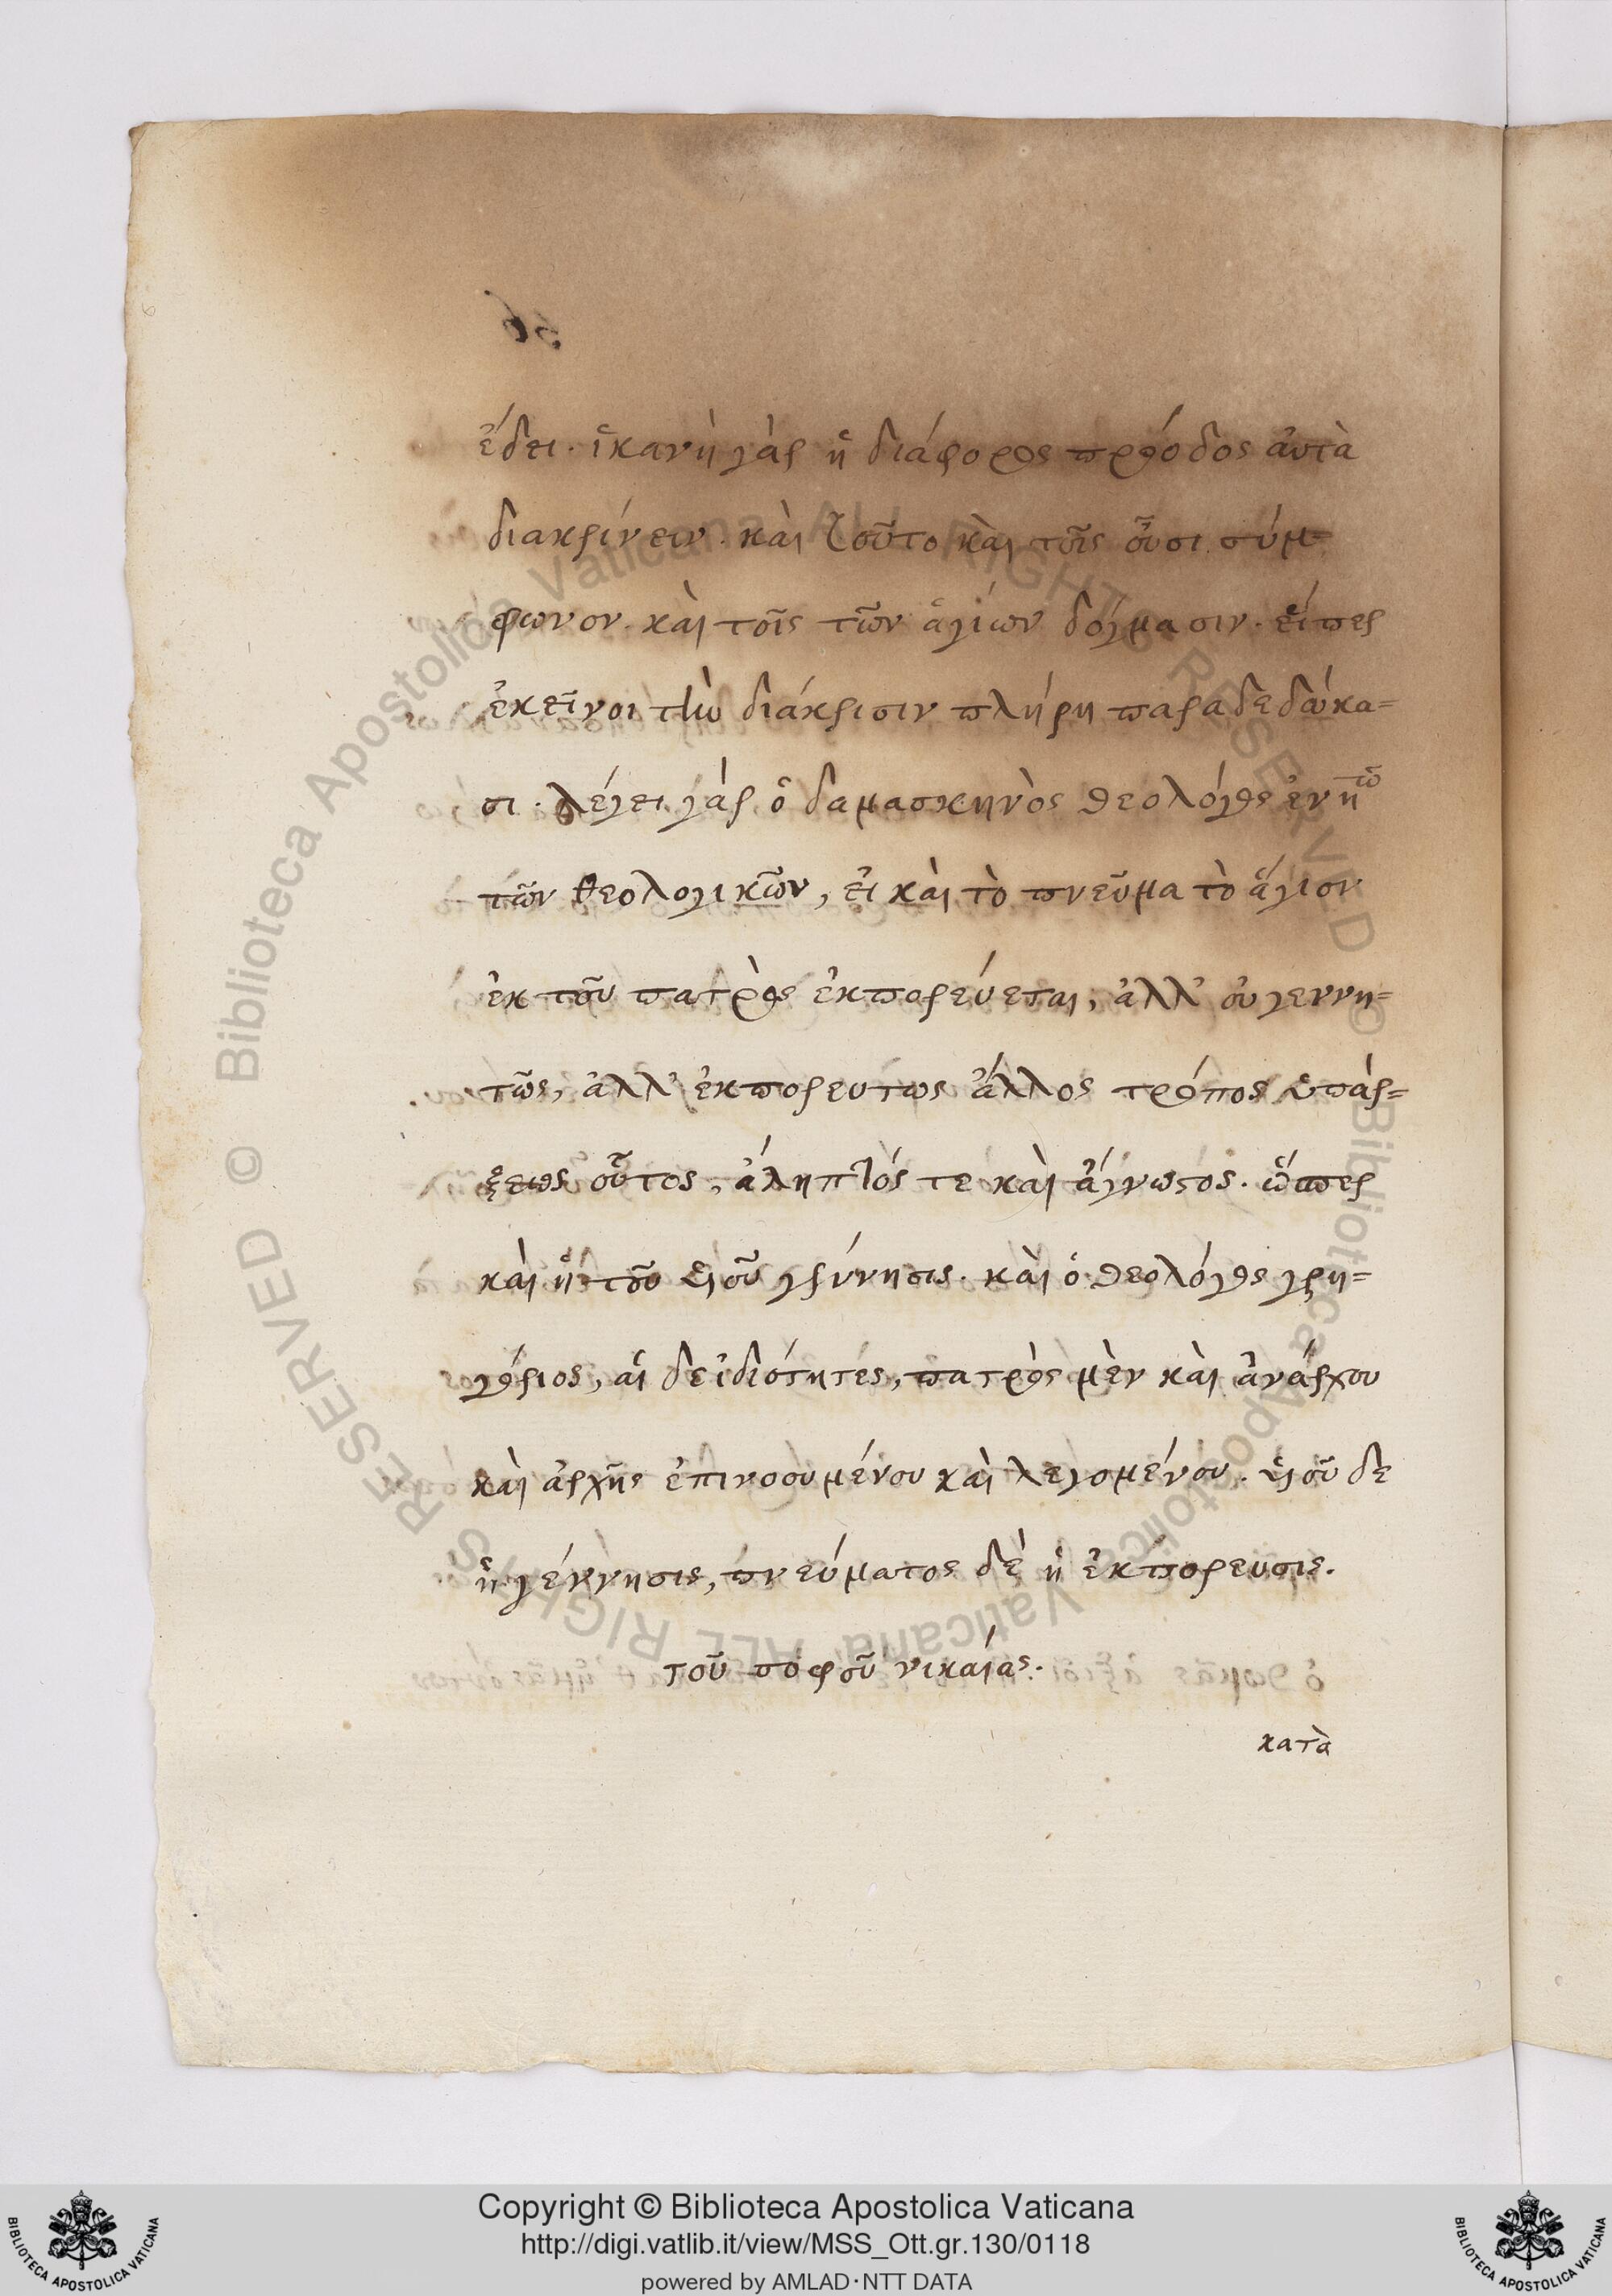 ἔδει. ἱκανὴ γὰρ ἡ διάφορος πρόοδος αὐτὰ
διακρίνειν. καὶ τοῦτο καὶ τοῖς οὖσι σύμ=
φωνον. καὶ τοῖς τῶν ἁγίων δόγμασιν. εἴπερ
ἐκεῖνοι τὴν διάκρισιν πλήρη παραδεδώκα=
σι. λέγει γὰρ ὁ δαμασκηνὸς θεολόγος ἐν ηῷ
τῶν θεολογικῶν, εἰ καὶ τὸ πνεῦμα τὸ ἅγιον
ἐκ τοῦ πατρὸς ἐκπορεύεται, ἀλλ' οὐ γεννη=
τῶς, ἀλλ' ἐκπορευτως ἄλλος τρόπος ὑπάρ=
ξεως οὗτος, ἄληπτός τε καὶ ἄγνωστος. ὥσπερ
καὶ ἡ τοῦ υἱοῦ γέννησις. καὶ ὁ θεολόγος γρη=
γόριος, αἱ δε ἰδιότητες, πατρὸς μὲν καὶ ἀνάρχου
καὶ ἀρχῆς ἐπινοουμένου καὶ λεγομένου. υἱοῦ δε
ἡ γέννησις, πνεύματος δὲ ἡ ἐκπόρευσις.
τοῦ σοφοῦ νικαίας.
κατὰ
© Biblioteca Apostolica Vaticana ALL RIGHTS RESERVED
© Biblioteca Apostolica Vaticana ALL RIGHTS RESERVED
Copyright © Biblioteca Apostolica Vaticana
http://digi.vatlib.it/view/MSS_Ott.gr.130/0118
powered by AMLAD·NTT DATA
BIBLIOTECA APOSTOLICA VATICANA
BIBLIOTECA APOSTOLICA VATICANA